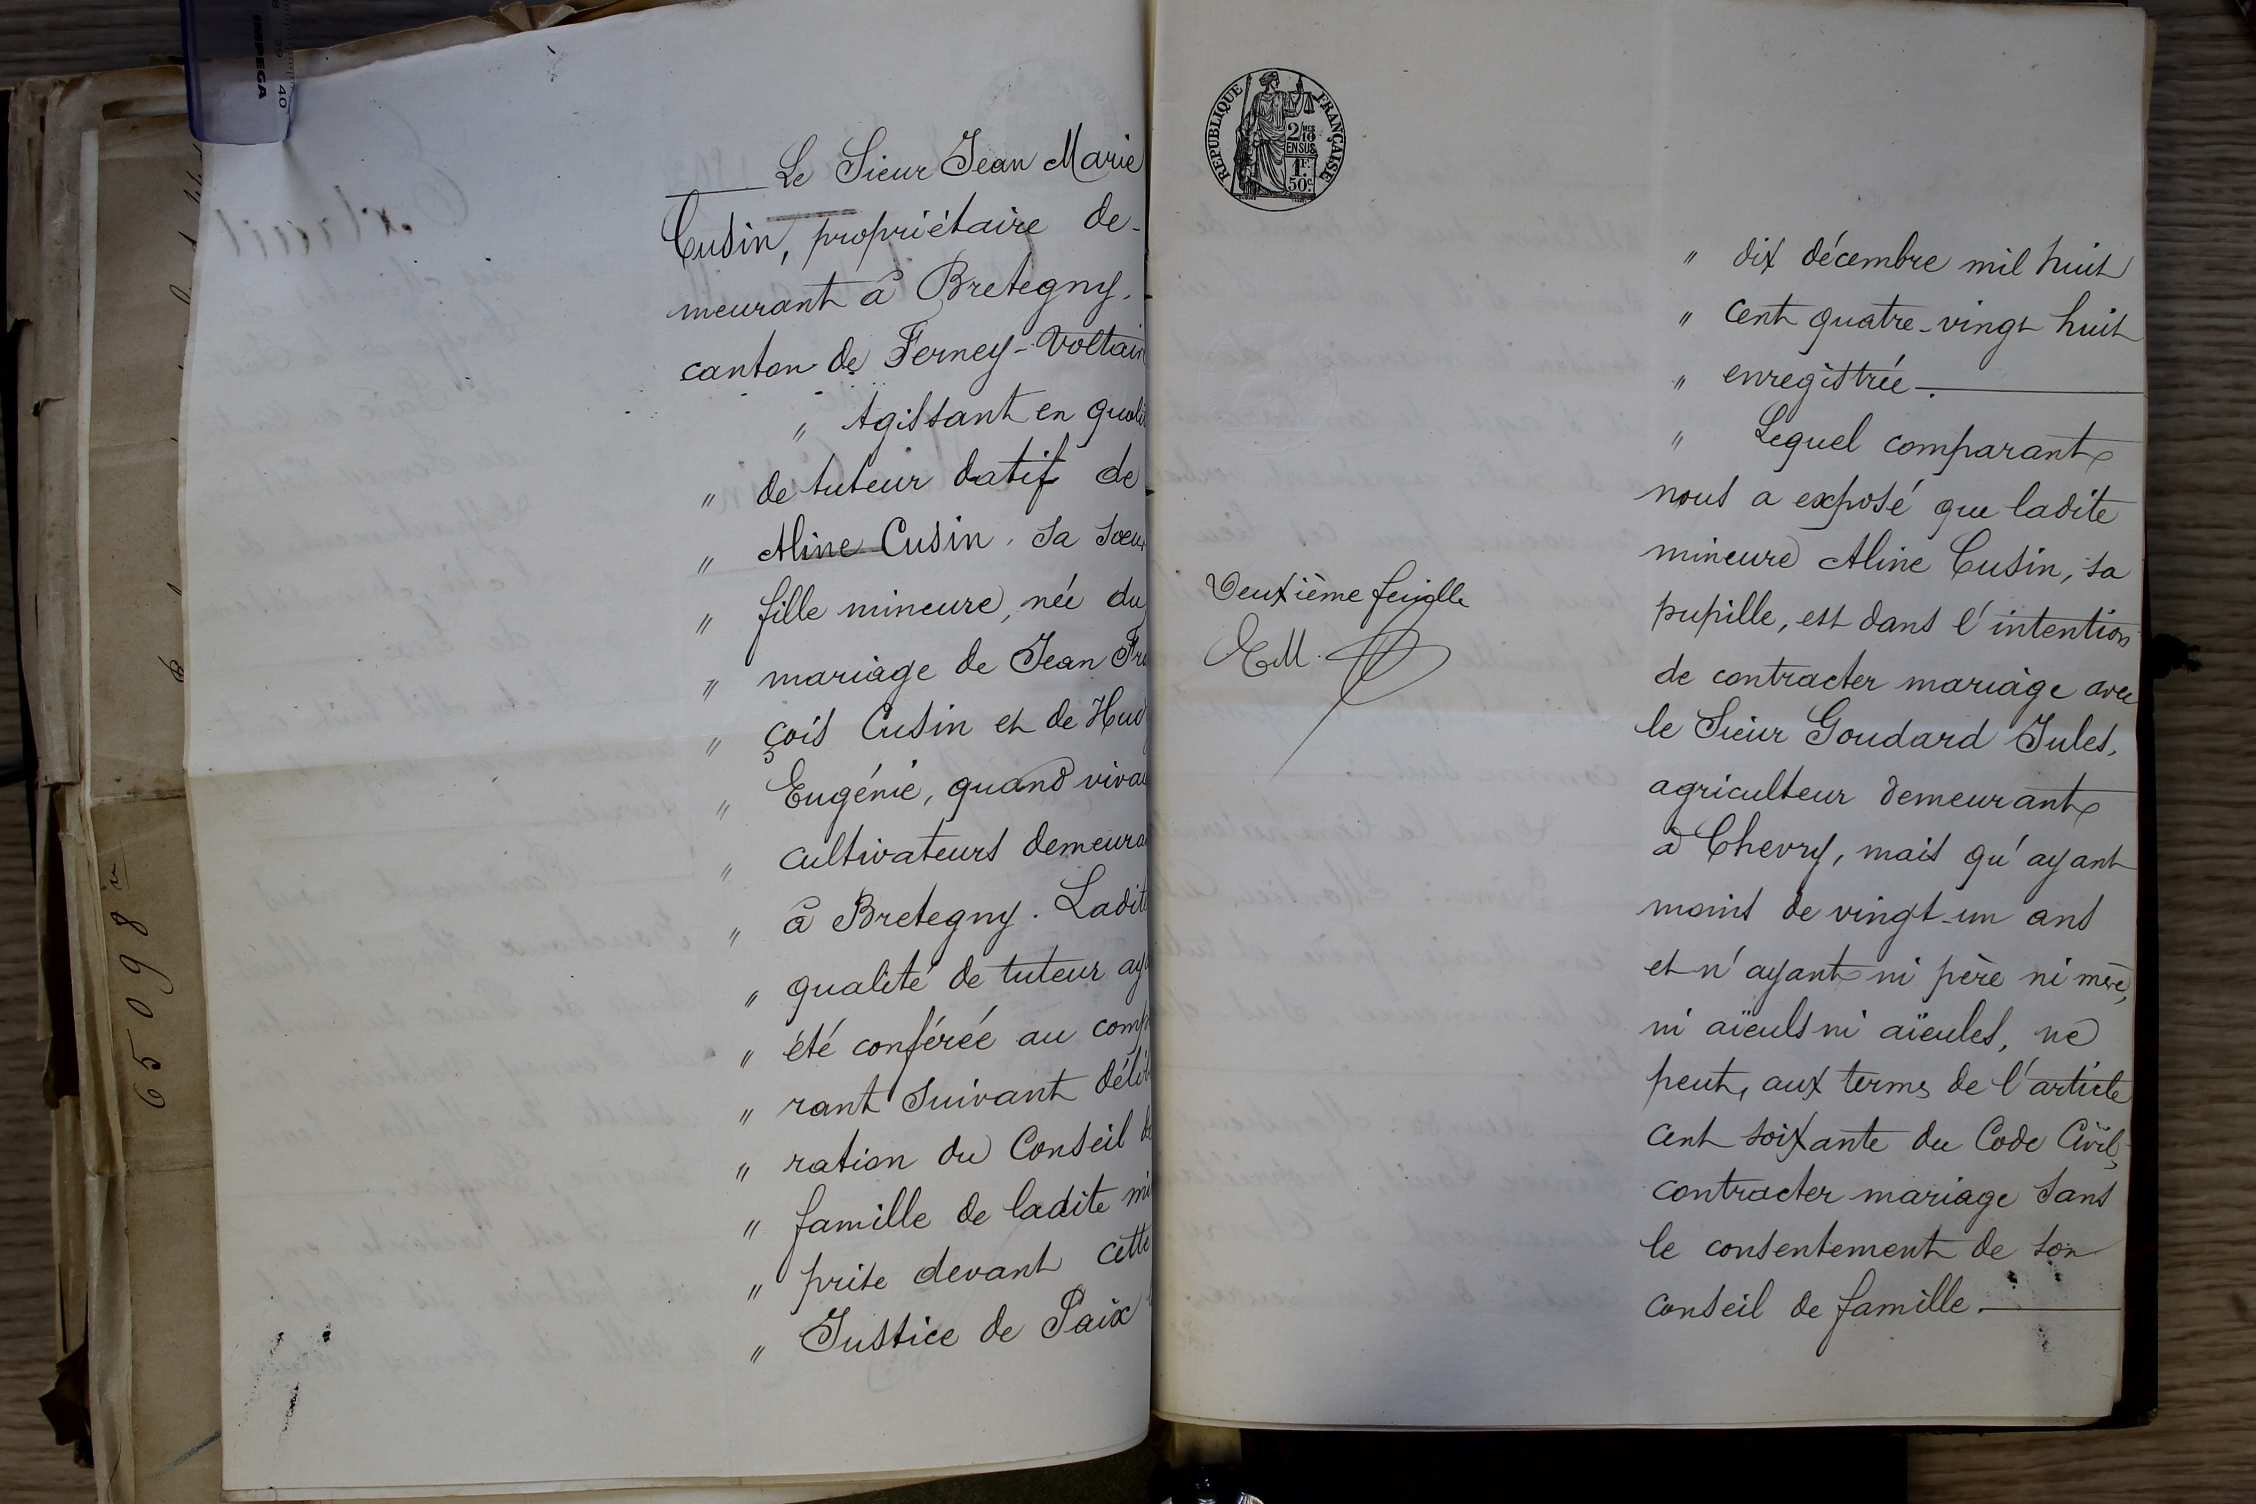 Le Sieur Jean Marie
Cusin, propriétaire de-
meurant à Bretegny,
canton de Ferney-Voltair
" Agissant en quali
" de tuteur datif de
" Aline Cusin, sa soeur
" fille mineure, née du
" mariage de Jean Fra
" çois Cusin et de Hud
" Eugénie, quand viva
" cultivateurs demeura
" à Bretegny. Ladite
" qualité de tuteur aya
" été conférée au compa
" rant suivant délibé
" ration du Conseil de
" famille de ladite mi
" prise devant cette
" Justice de Paix
REPUBLIQUE FRANÇAISE
2/10 MES
EN SUS
1F.
50c.
" dix décembre mil huit
" cent quatre-vingt huit
" enregistrée.
" Lequel comparant
nous a exposé que ladite
mineure Aline Cusin, sa
pupille, est dans l'intention
de contracter mariage avec
le Sieur Goudard Jules,
agriculteur demeurant
à Chevry, mais qu'ayant
moins de vingt-un ans
et n'ayant ni père ni mère,
ni aïeuls ni aïeules, ne
peut, aux termes de l'article
cent soixante du Code Civil,
contracter mariage sans
le consentement de son
conseil de famille.
Deuxième feuille
65098
40